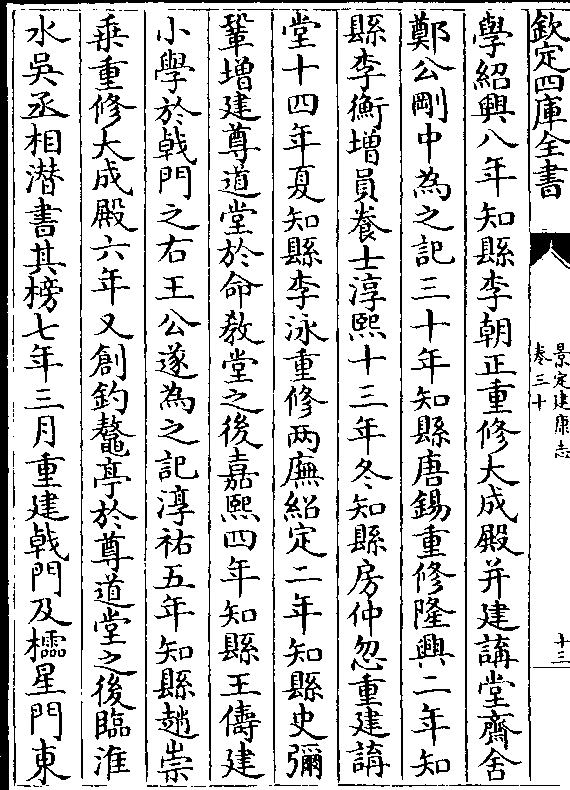 欽定四庫全書
景定建康志
卷三十
十三
學紹興八年知縣李朝正重修大成殿并建講堂齋舍
鄭公剛中為之記三十年知縣唐錫重修隆興二年知
縣李衡增員養士淳熙十三年冬知縣房仲忽重建講
堂十四年夏知縣李泳重修两廡紹定二年知縣史彌
鞏增建尊道堂於命教堂之後嘉熙四年知縣王儔建
小學於㦸門之右王公遂為之記淳祐五年知縣趙崇
乗重修大成殿六年又創釣鼇亭於尊道堂之後臨淮
水吳丞相潜書其榜七年三月重建㦸門及櫺星門東